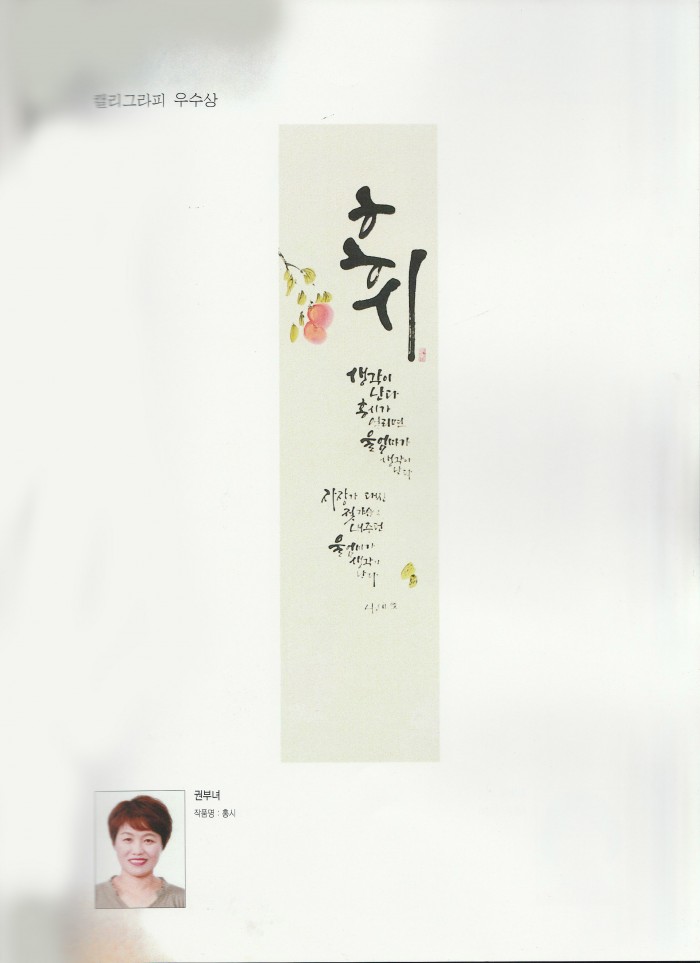 캘리그라피 우수상
홍시
생각이
난다
홍시가
열리면
울엄마가
생각이
난다
자장가 대신
젖가슴을
내주던
울엄마가
생각이
난다
권부녀
작품명 : 홍시